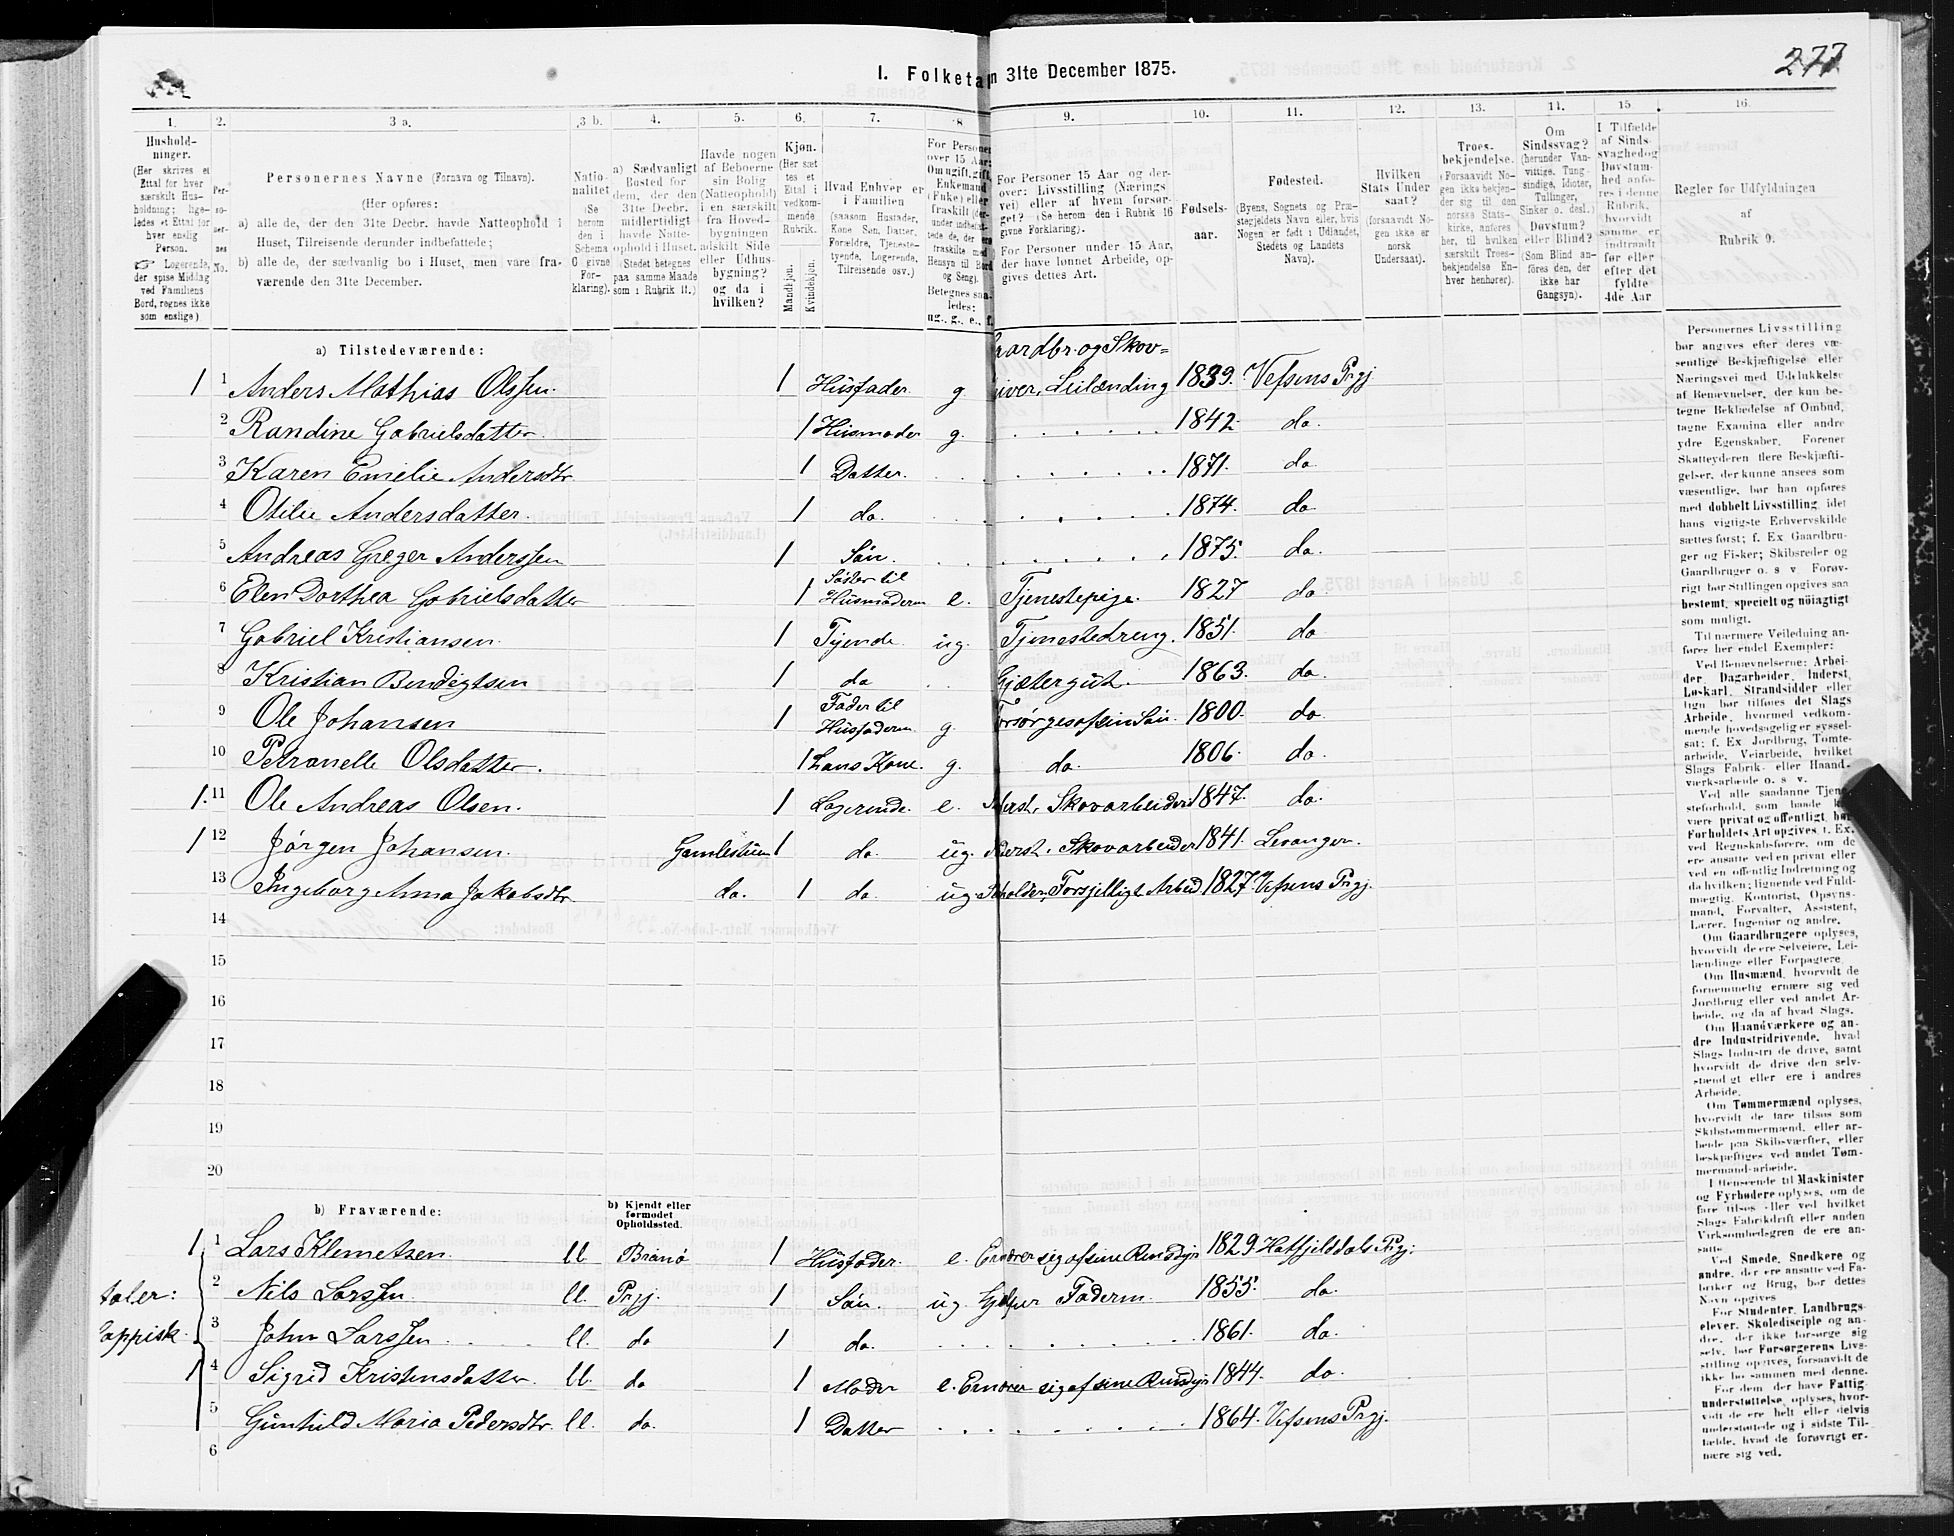 277
I. Folketa n 31te December 1875.
1. 2. 3 a. 3 b. 4. 5. 6. 7. 8 9. 10. 11. 12. 13. 14. 15 16.
Hushold-
ninger.
(Her skrives et
Ettal for hver
særskilt Hus-
holdning; lige-
ledes et Ettal for
hver enslig
Person.
Logerende,
der spise Middag
ved Familiens
Bord, regnes ikke
som enslige)
Per-
so-
ner-
nes
No.
Personernes Navne (Fornavn og Tilnavn).
(Her opføres:
a) alle de, der den 31te Decbr. havde Natteophold i
Huset, Tilreisende derunder indbefattede;
b) alle de, der sædvanlig bo i Huset, men vare fra-
værende den 31te December.
Natio-
nalitet
(Se
herom
den i
Schema
G givne
For-
klaring).
a) Sædvanligt
Bosted for
dem, der den
31te Decbr.
midlertidigt
havde Natte-
ophold i Huset.
(Stedet betegnes
paa samme Maade
som i Rubrik 11.)
Havde nogen
af Beboerne
sin Bolig
(Natteophold)
i en særskilt
fra Hoved-
bygningen
adskilt Side
eller Udhus-
bygning?
og da i
hvilken?
Kjøn.
(Her sæt
tes et
Ettal i
vedkom-
mende
Rubrik.
Mandkjøn.
Kvindekjøn.
Hvad Enhver er
i Familien
(saasom Husfader,
Kone Søn, Datter,
Forældre, Tjeneste-
tyende, Logerende,
Tilreisende osv.)
For Persone
over 15 Aar:
Om ugift, gift,
Enkemand
(Enke) eller
fraskilt
Hensyn til Bord
og Seng).
Betegnes saa-
ledes:
ug., g., e., f.
For Personer 15 Aar og der-
over: Livsstilling (Nærings
vei) eller af hvem forsør-
get? (Se herom den i Rubrik 16
givne Forklaring).
For Personer under 15 Aar,
der have lønnet Arbeide, op-
gives dettes Art.
Fødsels-
aar.
Fødested.
(Byens, Sognets og Præ-
stegjeldets Navn eller, hvis
Nogen er født i Udlandet,
Stedets og Landets
Navn).
Hvilken
Stats Under
saat?
(forsaavidt No-
gen ikke er
norsk
Undersaat).
Troes-
bekjendelse.
(Forsaavidt No-
gen ikke bekjen-
der sig til den
norske Stats-
kirke, anføres
her, til hvilken
særskilt Troes-
bekjendelse En-
hver henhører).
Om
Sindssvag?
(herunder Van-
vittige, Tung-
sindige, Idioter,
Tullinger,
Sinker o. desl.)
Døvstum?
eller Blind?
(Som Blind an-
føres den, der
ikke har
Gangsyn).
I Tilfælde
af Sinds-
svaghedog
Døvstum-
hed anfø-
res i denne
Rubrik,
hvorvidt
samme er
indtraadt
før eller
efter det
fyldte
4de Aar
Regler for Udfyldningen
af
Rubrik 9.
a) Tilstedeværende:
aardbr. og Skov=
1 1 Anders Mathias Olssen. 1 Husfader. g iver, Leilænding 1839. Vefsens Prgj
2 Randine Gabrielsdatter. 1 Husmoder g. 1842. do.
3 Karen Emelie Andersdtr. 1 Datter. 1871. do
4 Otilie Andersdatter. 1 do. 1874. do
5 Andreas Greger Anderssen 1 Søn. 1875. do.
6 Elen Dorthea Gabrielsdatter 1 Søster til Husmoderen e. Tjenestepige. 1827 do.
7 Gabriel Kristiansen. 1 Tyende ug. Tjenestedreng. 1851. do
8 Kristian Bendigtsen 1 do Gjætergut. 1863. do.
9 Ole Johansen 1 Fader til Husfaderen g. Forsørges af sin Søn. 1800. do.
10 Petronelle Olsdatter. 1 Hans Kone. g. do. 1806. do.
1. 11 Ole Andreas Olsen. 1 Logerende. e. Skovarbeider 1847. do.
1 12 Jørgen Johansen. Gamlestuen 1 do. ug. Skovarbeider 1841. Levanger.
13 Ingeborg Anna Jakobsdtr. do. 1 do. ug. Forsjelligt Arbeid 1827. Vefsens Prgj.
14
15
16
17
18
19
20
b) Fraværende:
b) Kjendt eller
formodet
Opholdssted.
1 1 Lars Klemetsen. ll Brønø 1 Husfader. e. Ernærer sig af sine Rensdyr 1829. Hatfjelddals Prgj.
taler: 2 Nils Larssen ll. Prgj. 1 Søn. ug. Hjelper Faderen. 1855. do.
lappisk. 3 John Larssen ll. do 1 do. 1861. do.
1 4 Sigrid Kristensdatter. ll. do 1 Moder e. Ernærer sig af sine Rensdyr 1844. do.
5 Gunhild Maria Pedersdtr. ll. do. 1 Datter 1864. Vefsens Prgj.
6
Personernes Livsstilling
bør angives efter deres væ-
sentlige Beskjæftigelse eller
Næringsvei med Udelukkelse
af Benævnelser, der kun be-
tegne Beklædelse af Ombud,
tagne Examina eller andre
ydre Egenskaber. Forener
Skatteyderen flere Beskjæfti-
gelser, der kunne ansees som
væsentlige, bør han opføres
med dobbelt Livsstilling, idet
hans vigtigste Erhvervskilde
sættes først; f. Ex Gaardbru-
ger og Fisker; Skibsreder og
Gaardbruger o. s v Forøv-
rigt bør Stillingen opgives saa
bestemt, specielt og nöiagtigt
som muligt.
Til nærmere Veiledning an-
føres her endel Exempler:
Ved Benævnelserne: Arbei-
der, Dagarbeider, Inderst,
Løskarl, Strandsidder eller
lign bør tilføres det Slags
Arbeide, hvormed vedkom-
mende hovedsagelig er syssel-
sat; f. Ex Jordbrug, Tomte-
arbeide, Veiarbeide, hvilket
Slags Fabrik- eller Haand-
værksarbeide o. s v.
Ved alle saadanne Tjene
steforhold, som baade k
være privat og offentligt, bør
Forholdets Art opgives, f. Ex.
ved Regnskabsførere, om de
ere ansatte ved en privat eller
ved en offentlig Indretning og
da hvilken; lignende ved Fuld-
mægtig, Kontorist, Opsyns-
mand, Forvalter, Assistent,
Lærer, Ingeniør og andre.
Om Gaardbrugere oplyses,
hvorvidt de ere Selveiere, Lei-
lændinge eller Forpagtere.
Om Husmænd, hvorvidt de
fornemmelig ernære sig ved
Jordbrug eller ved andet Ar-
beide, og da af hvad Slags.
Om Haandværkere og an-
dre Industridrivende, hvad
Slags Industri de drive, samt
hvorvidt de drive den selv-
stændigt eller ere i andres
Arbeide.
Om Tømmermænd oplyses,
hvorvidt de fare tilsøs som
Skibstømmermænd, eller ar-
beide paa Skibsværfter, eller
beskjæftiges ved andet Tøm-
mermand-arbeide.
I Henseende til Maskinister
og Fyrbødere oplyses, om de
fare tilsøs eller ved hvilket
Slags Fabrikdrift eller anden
Virksomhedsgren de ere an-
satte
Ved Smede, Snedkere og
andre, der ere ansatte ved Fa-
briker og Brug, bør dettes
Navn opgives
For Studenter, Landbrugs-
elever, Skoledisciple og an-
dre, der ikke forsørge sig
selv, bør Forsørgerens Livs-
stilling opgives, forsaavidt de
ikke bo sammen med denne.
For dem, der have Fattig-
understøttelse, oplyses, hvor-
vidt de ere helt eller delvis
understøttede og i sidste Til-
fælde, hvad de forøvrigt er-
nære sig ved.